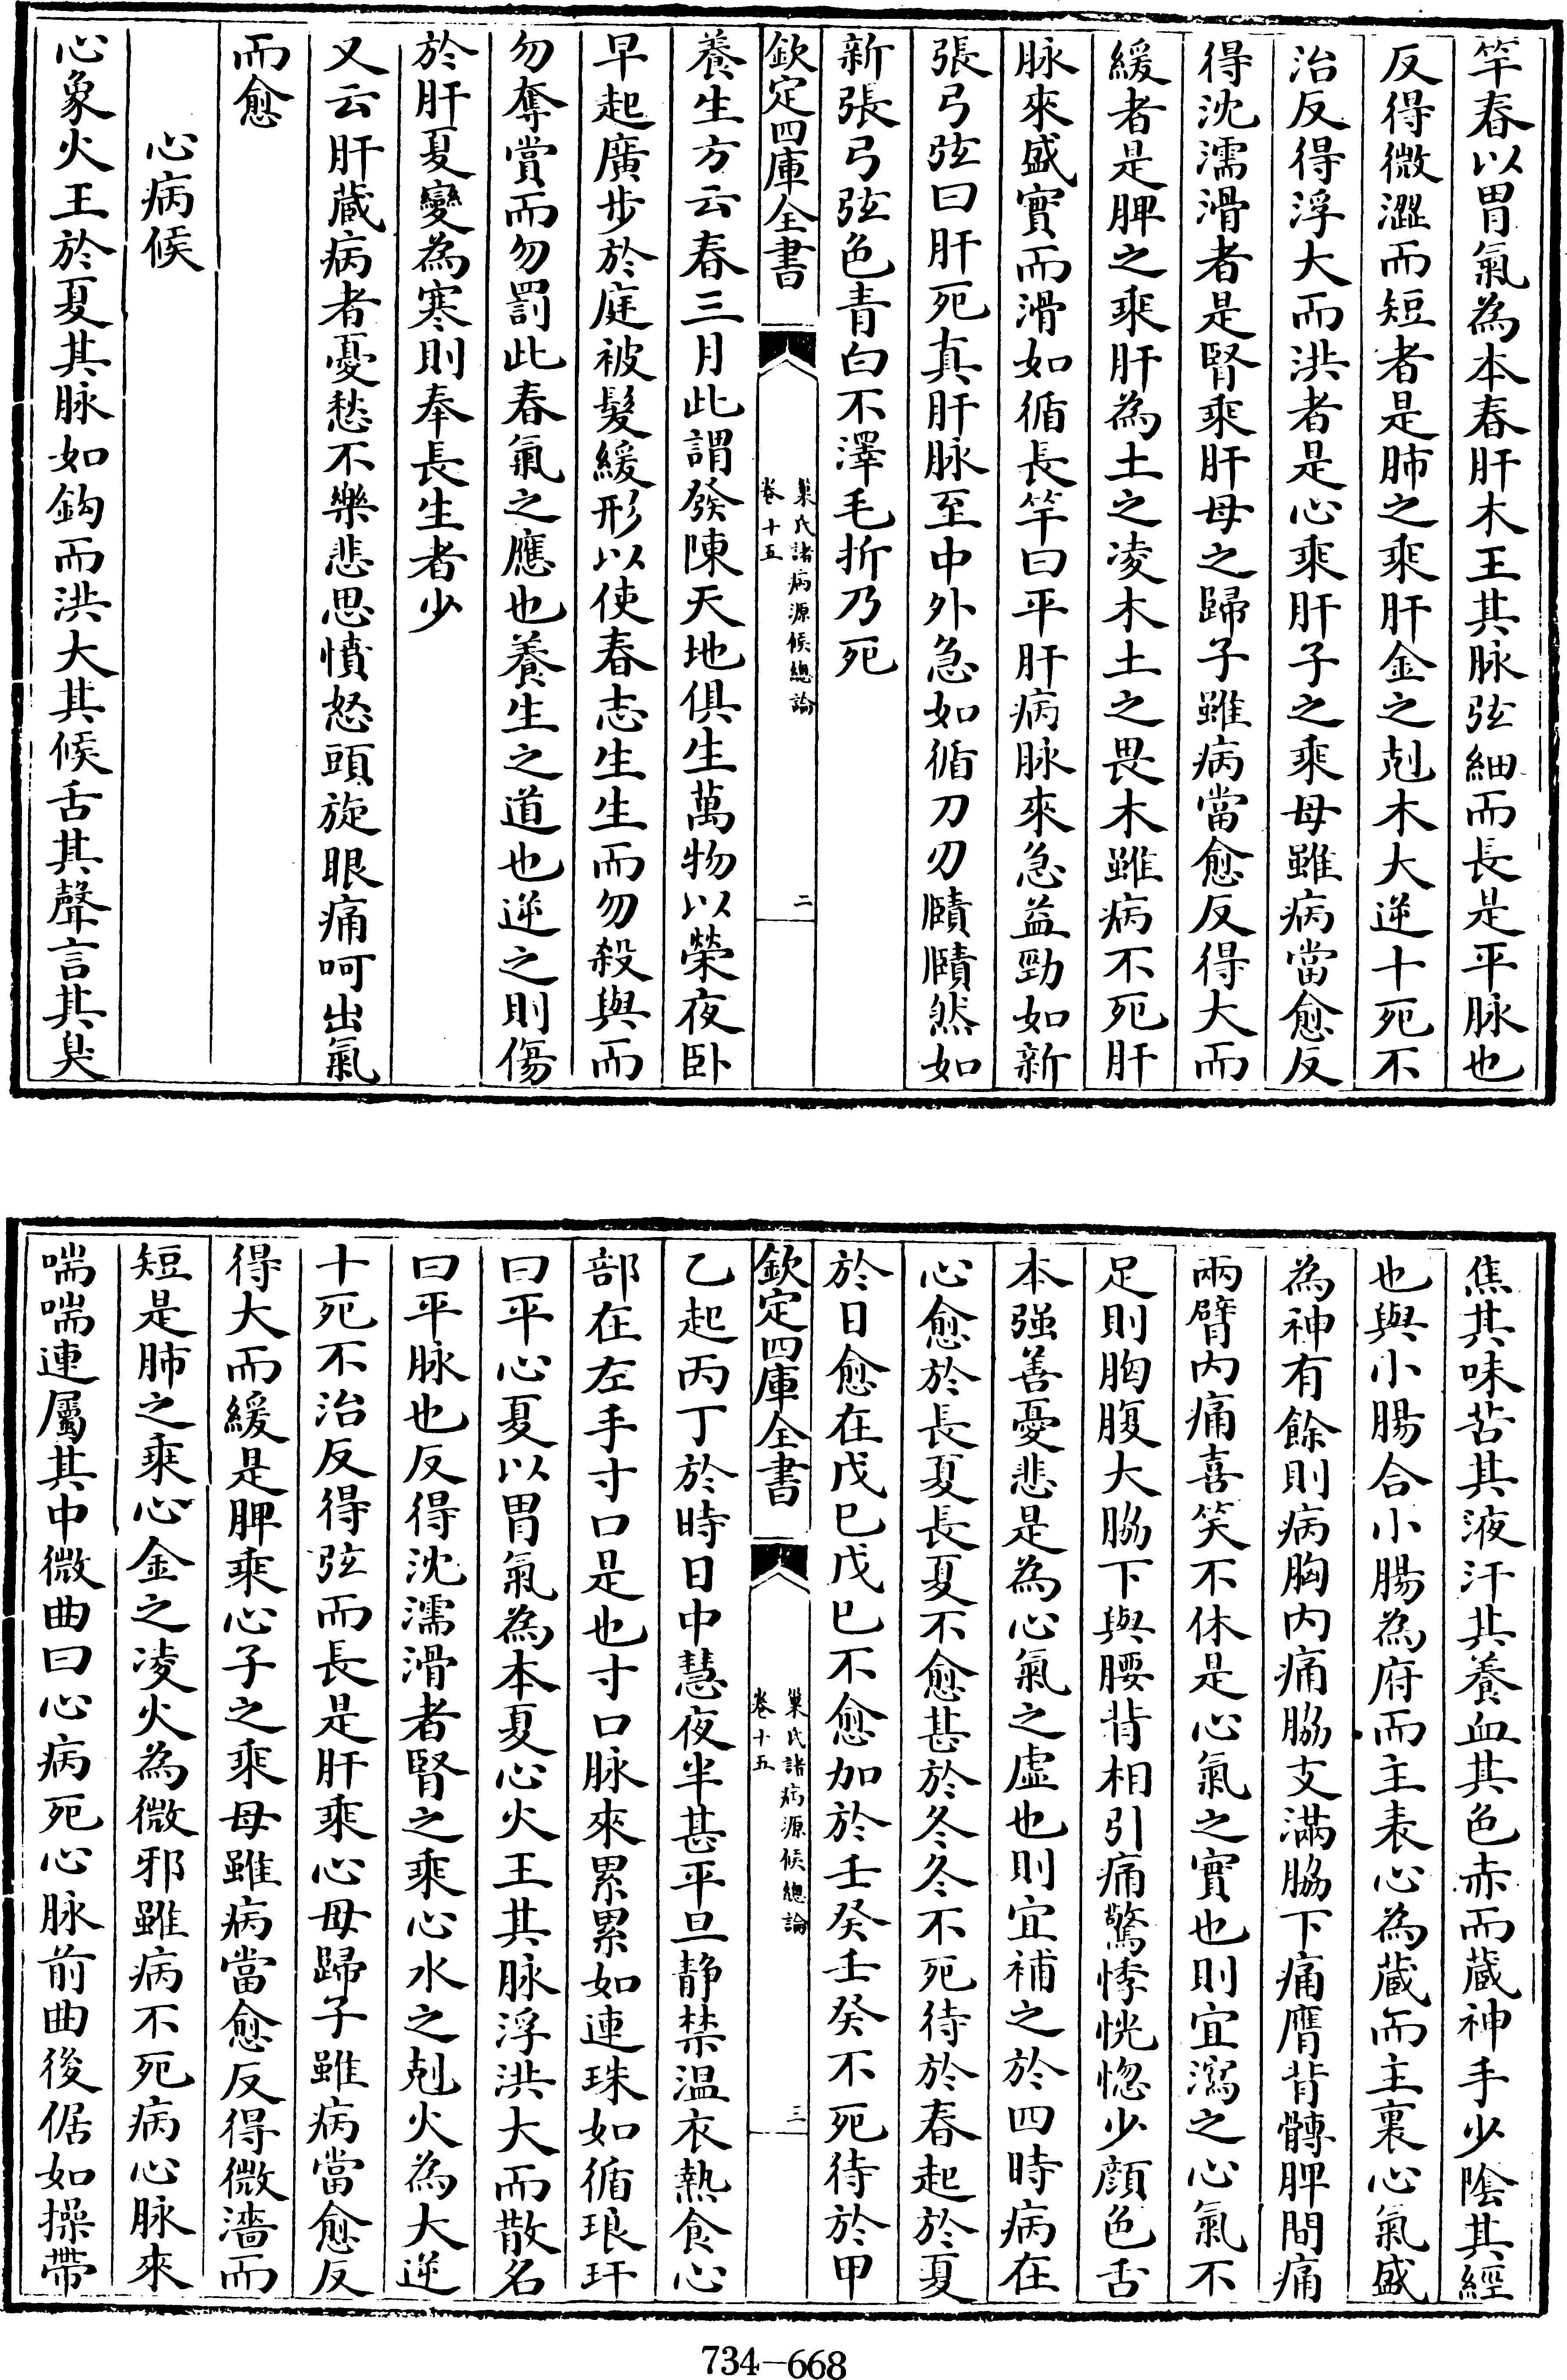 竿春以胃氣為本春肝木王其脉弦細而長是平脉也
反得微澀而短者是肺之乘肝金之剋木大逆十死不
治反得浮大而洪者是心乘肝子之乘母雖病當愈反
得沈濡滑者是腎乘肝母之歸子雖病當愈反得大而
緩者是脾之乘肝為土之凌木土之畏木雖病不死肝
脉來盛實而滑如循長竿曰平肝病脉來急益勁如新
張弓弦曰肝死真肝脉至中外急如循刀刃賾賾然如
新張弓弦色青白不澤毛折乃死
欽定四庫全書
巢氏諸病源候總論
卷十五
二
養生方云春三月此謂發陳天地俱生萬物以榮夜卧
早起廣步於庭被髮緩形以使春志生生而勿殺與而
勿奪賞而勿罰此春氣之應也養生之道也逆之則傷
於肝夏變為寒則奉長生者少
又云肝蔵病者憂愁不樂悲思憤怒頭旋眼痛呵出氣
而愈
心病候
心象火王於夏其脉如鈎而洪大其候舌其聲言其臭
焦其味苦其液汗其養血其色赤而蔵神手少隂其經
也與小腸合小腸為府而主表心為蔵而主裏心氣盛
為神有餘則病胸内痛脇支滿脇下痛膺背髆胛間痛
兩臂内痛喜笑不休是心氣之實也則宜瀉之心氣不
足則胸腹大脇下與腰背相引痛驚悸恍惚少顔色舌
本强善憂悲是為心氣之虛也則宜補之於四時病在
心愈於長夏長夏不愈甚於冬冬不死待於春起於夏
於日愈在戊巳戊巳不愈加於壬癸壬癸不死待於甲
欽定四庫全書
巢氏諸病源候總論
卷十五
三
乙起丙丁於時日中慧夜半甚平旦静禁温衣熱食心
部在左手寸口是也寸口脉來累累如連珠如循琅玕
曰平心夏以胃氣為本夏心火王其脉浮洪大而散名
曰平脉也反得沈濡滑者腎之乘心水之剋火為大逆
十死不治反得弦而長是肝乘心母歸子雖病當愈反
得大而緩是脾乘心子之乘母雖病當愈反得微濇而
短是肺之乘心金之凌火為微邪雖病不死病心脉來
喘喘連屬其中微曲曰心病死心脉前曲後倨如操帶
734-668